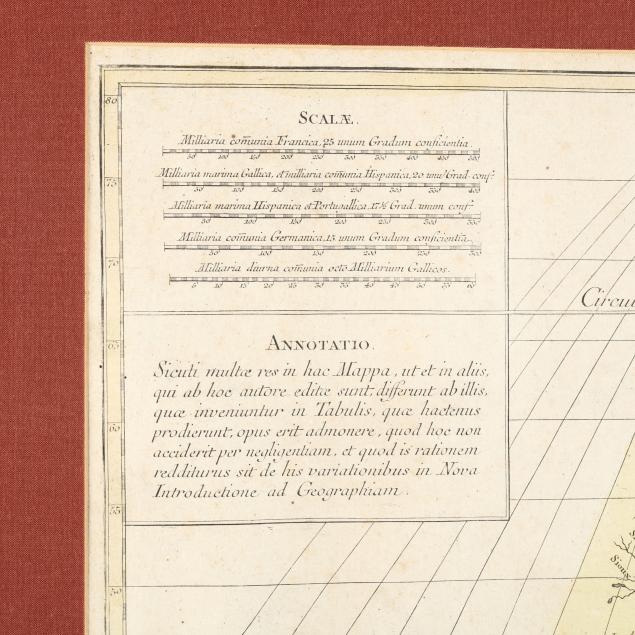 80
SCALÆ.
Milliaria com̃unia Francica, 25 unum Gradum conficientia.
50 100 150 200 250 300 350 400 450 500
Milliaria marina Gallica, et milliaria com̃unia Hispanica, 20 unu Grad. conf.
50 100 150 200 250 300 350 400
75
Milliaria marina Hispanica et Portugallica, 17½ Grad. unum conf.
50 100 150 200 250 300
Milliaria com̃unia Germanica, 15 unum Gradum conficientia.
50 100 150 200 250 300
70
Milliaria diurna com̃unia octo Milliarium Gallicos.
5 10 15 20 25 30 35 40 45 50 55 60
Circu
65
ANNOTATIO.
Sicuti multæ res in hac Mappa, ut et in aliis,
qui ab hoc autore editæ sunt, differunt ab illis,
quæ inveniuntur in Tabulis, quæ hactenus
60
prodierunt, opus erit admonere, quod hoc non
acciderit per negligentiam, et quod is rationem
redditurus sit de his variationibus in Nova
Introductione ad Geographiam.
55
Sioux
50